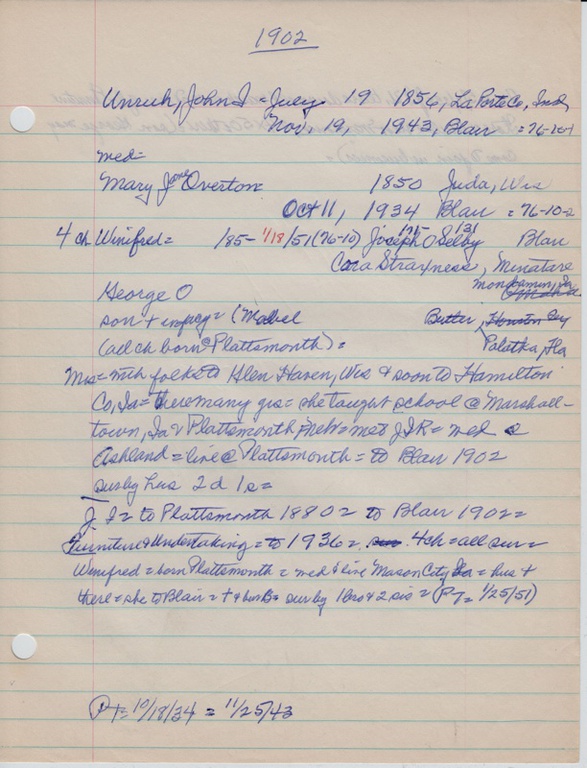 1902
Unruh, John I = July 19 1856, LaPorte Co, Ind
Nov. 19, 1943, Blair = 76-10-1
med=
Mary Jane Overton = 1850 Juda, Wis
Oct 11, 1934 Blair = 76-10-2
4 ch Winifred = /85- 1/18/51 (76-10) Joseph O Selby Blair
Cora Straxness, Minatare
George O
son + (Mabel Palatka, Fla
(all ch born @ Plattsmouth) =
Mrs = with folks to Glen Haven, Wis & soon to Hamilton
Co, Ia = there many yrs = she taught school @ Marshall-
town, Ia & Plattsmouth, Neb = met J I R = med @
Ashland = live @ Plattsmouth = to Blair 1902
sur by hus 2 d 1 s =
J I = to Plattsmouth 1880 = to Blair 1902 =
Furniture & Undertaking = to 1936 = 4 ch = all sur =
Winifred = born Plattsmouth = med & live Mason City Ia = hus +
there = she to Blair = + & bur B = sur by 1 bro & 2 sis = (PT = 1/25/51)
PT = 10/18/34 = 11/25/43